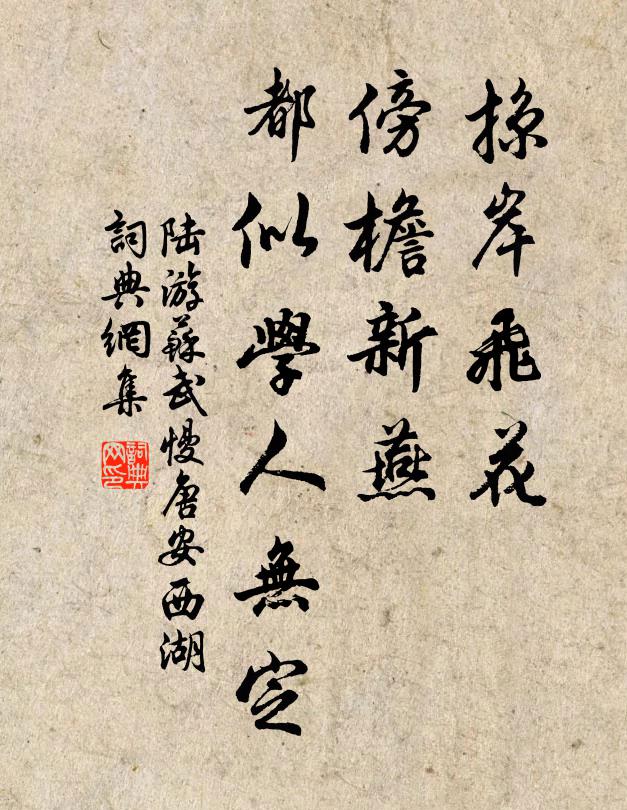 掠岸飛花
傍檐新燕
都似學人無定
陸游蘇武慢唐安西湖
詞典網集
詞典網印